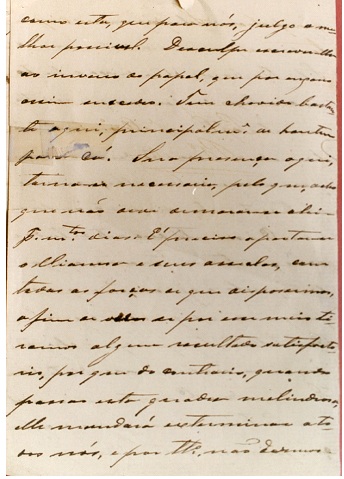 como esta, que para nós, julgo a me-
lhor possivel. Desculpe escrever-lhe
ao inverso do papel, que por engano
assim succedeu. Tem chovido bastan-
te aqui, principalm.e de hontem
para cá. Sua presença aqui,
torna-se necessaria, pelo que, acho
que não deve demorar-se ahi
m.tos dias. É preciso apertar
o e seus asseclas, com
todas as forças de que dispomos,
afim de ver se por esse meio ti-
ramos algum resultado satisfato-
rio, por que do contrario, quando
passar esta quadra melindrosa,
elle mandará exterminar a to-
dos nós, e por tt.o não devemos